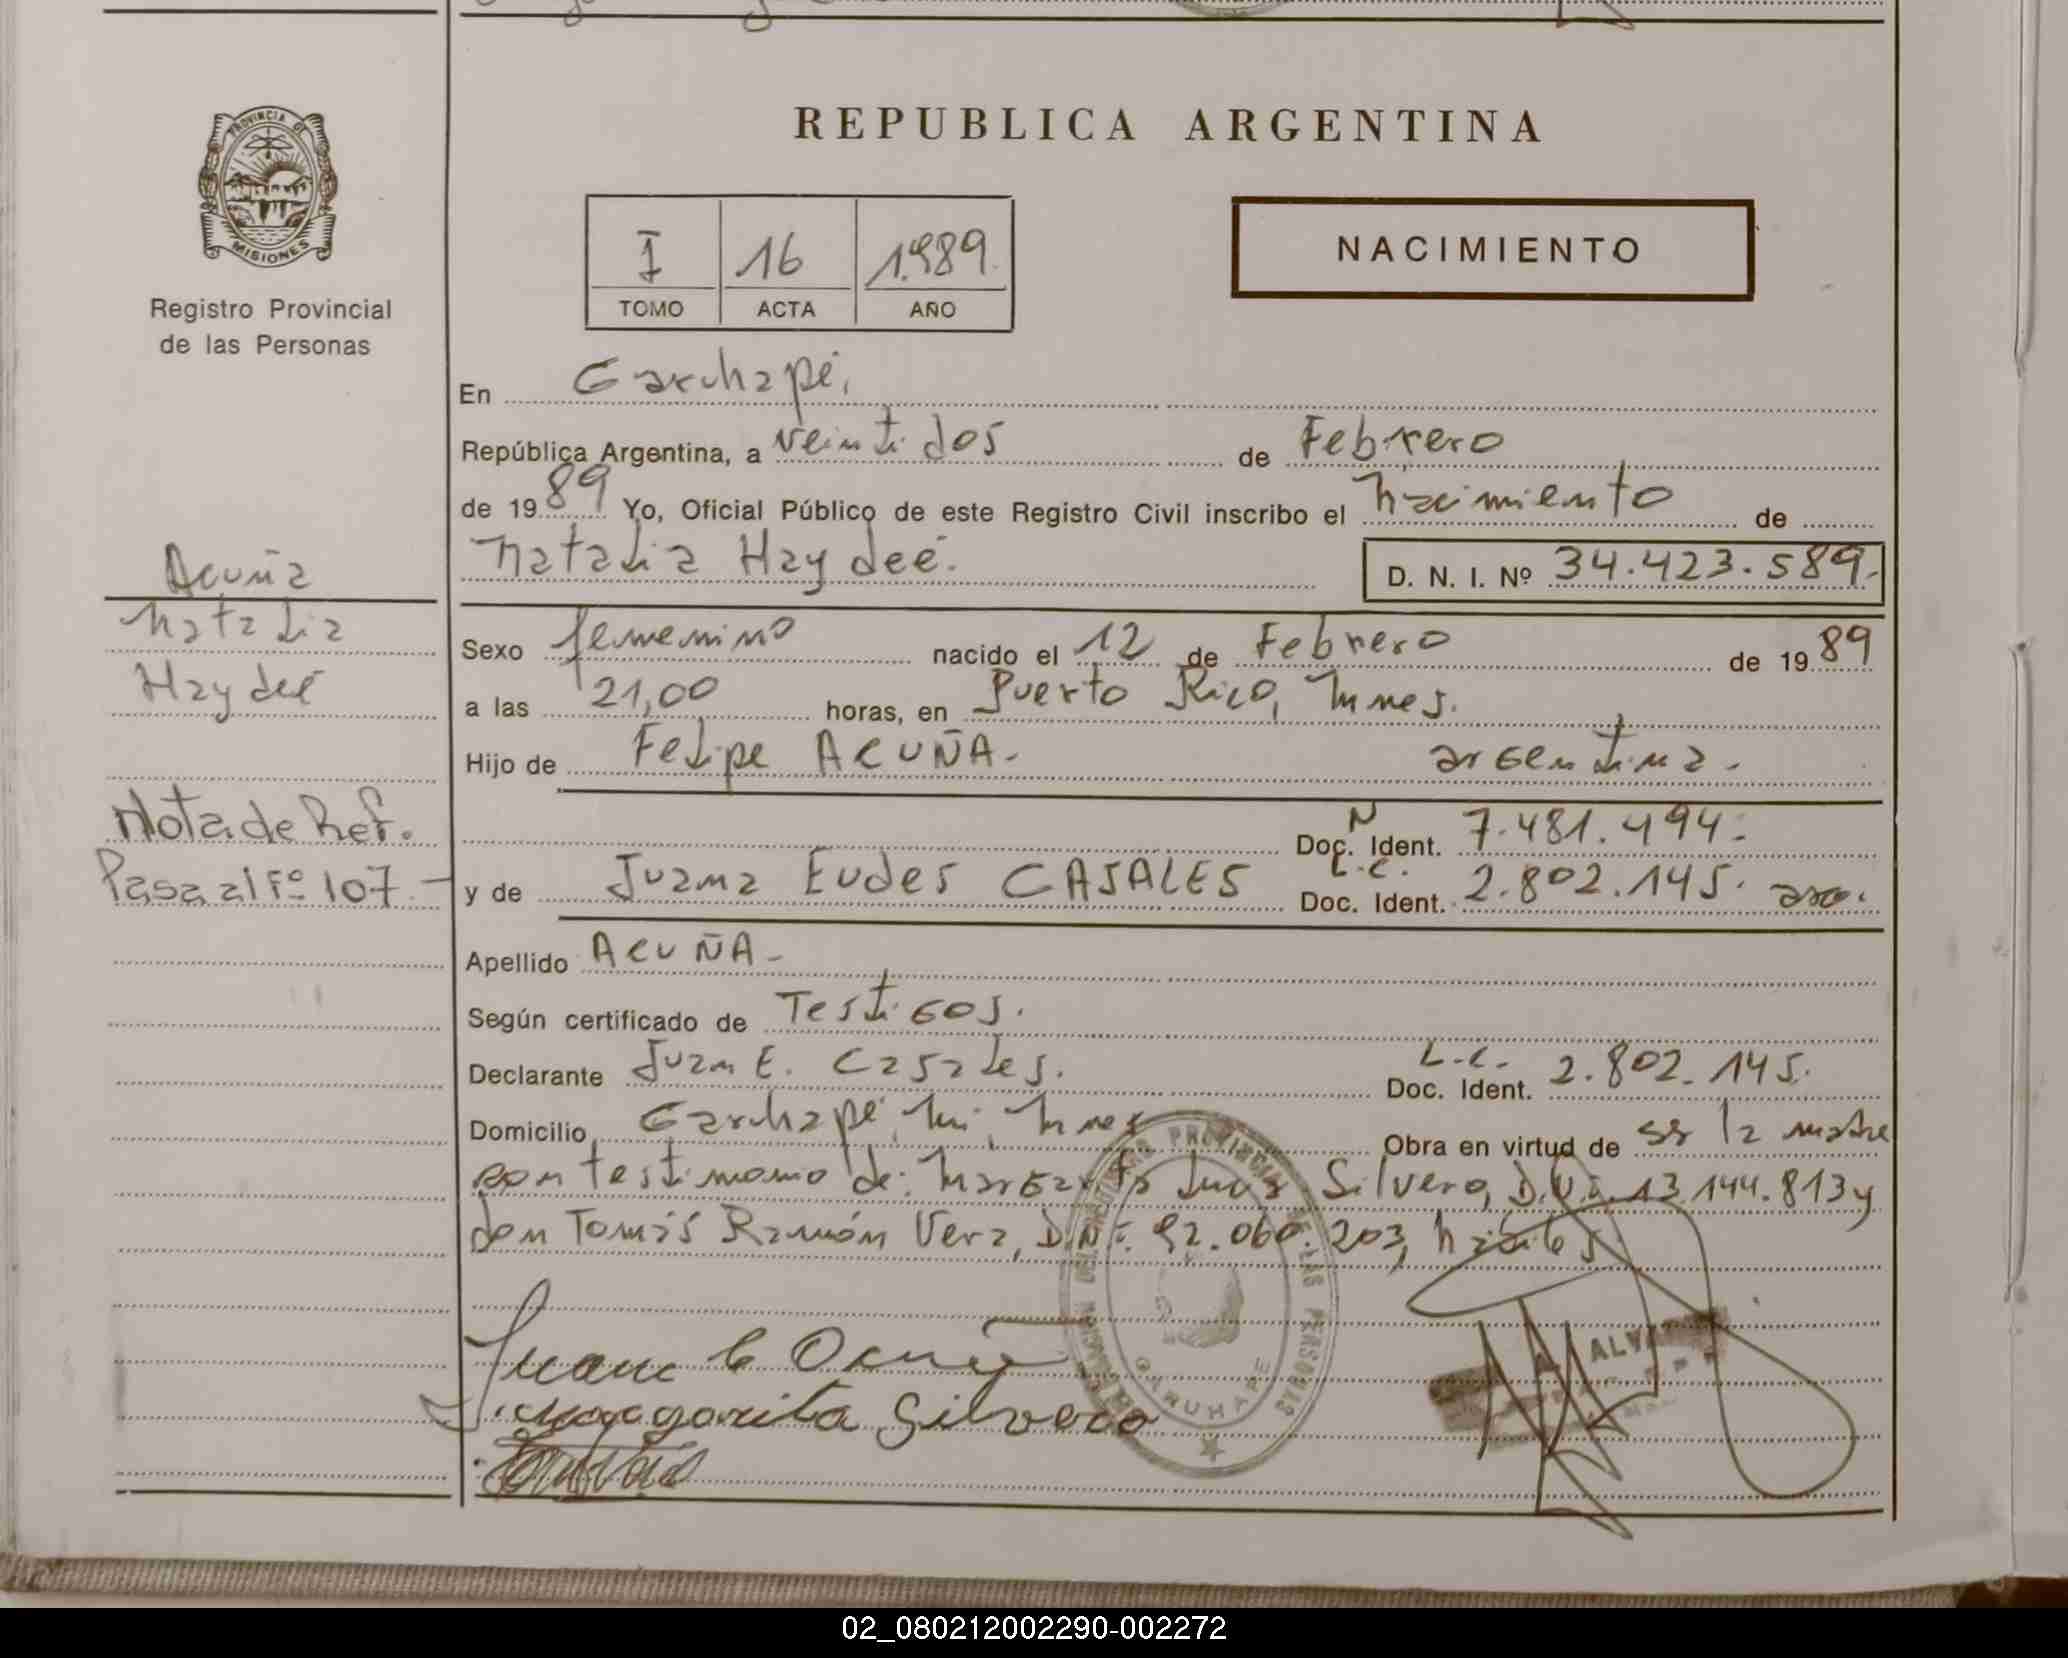 PROVINCIA DE
MISIONES
Registro Provincial
de las Personas
REPUBLICA ARGENTINA
I 16 1.989.
TOMO ACTA AÑO
NACIMIENTO
En Garuhapé,
República Argentina, a veintidos de Febrero
de 1989 Yo, Oficial Público de este Registro Civil inscribo el nacimiento de
Natalia Haydeé. D. N. I. Nº 34.423.589.-
Acuña
Natalia
Haydeé
Nota de Ref.
Pasa al Fº 107.-
Sexo femenino nacido el 12 de Febrero de 1989
a las 21,00 horas, en Puerto Rico, Mnes.
Hijo de Felipe ACUÑA.- argentina.
Doc. Ident. 7.481.494.
y de Juana Eudes CASALES L.C. Doc. Ident. 2.802.145.
Apellido ACUÑA-
Según certificado de Testigos.
Declarante Juan E. Casales. L.C. Doc. Ident. 2.802.145.
Domicilio Garuhapé, Mnes Obra en virtud de la madre
con testimonio de: Silvero, D.N.I. 13.144.813 y
don Tomás Ramón Vera, D.N.I. 92.060.203, hábiles
Margarita Silvero
PROVINCIAL DE LAS PERSONAS
GARUHAPE
02_080212002290-002272